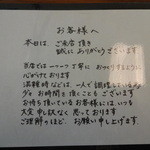 お客様へ
本日は ご来店頂き
誠にありがとうございます
当店では一つ一つ丁寧に
心がけております
混雑時などは 一人で調理している為
お時間を頂くこともございます
お待ち頂いているお客様にはいつも
大変申し訳なく思っております
ご理解のほど お願い申し上げます